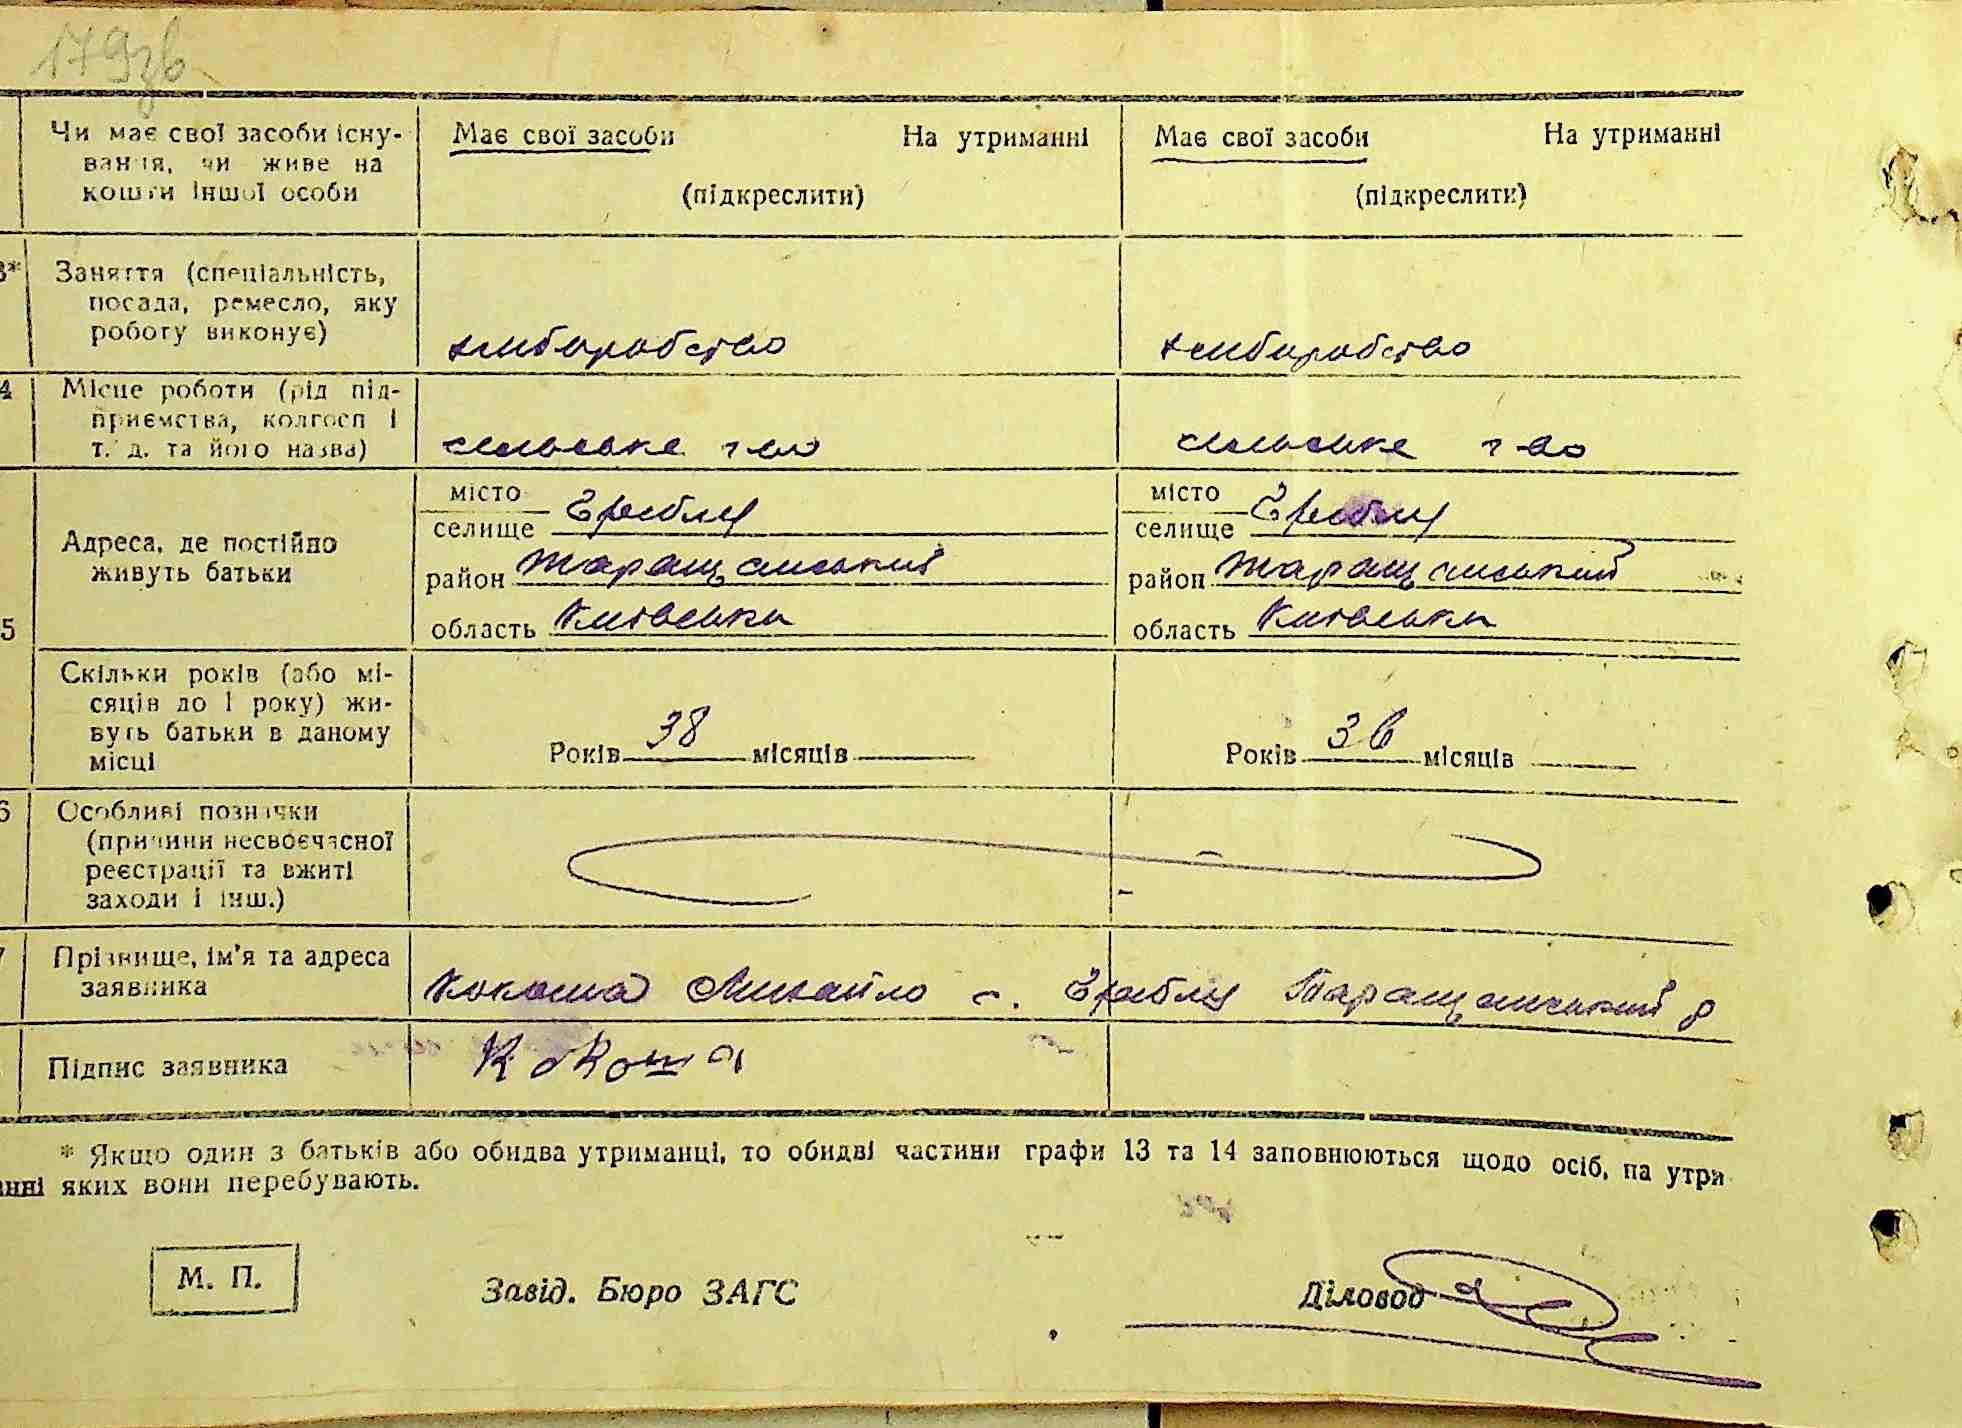 179зв
Чи має свої засоби існу-
вання, чи живе на
кошти іншої особи
Має свої засоби На утриманні
(підкреслити)
Має свої засоби На утриманні
(підкреслити)
3* Заняття (спеціальність,
посада, ремесло, яку
роботу виконує)
хліборобство
хліборобство
4 Місце роботи (рід під-
приємства, колгосп і
т. д. та його назва)
сільське г-во
сільське г-во
5
Адреса, де постійно
живуть батьки
місто
селище
район Таращанський
область Київська
місто
селище
район Таращанський
область Київська
Скільки років (або мі-
сяців до 1 року) жи-
вуть батьки в даному
місці
Років 38 місяців
Років 36 місяців
6 Особливі позначки
(причини несвоєчасної
реєстрації та вжиті
заходи і інш.)
7 Прізвище, ім'я та адреса
заявника
Кокоша Михайло с. Таращанський р
Підпис заявника
Кокоша
* Якщо один з батьків або обидва утриманці, то обидві частини графи 13 та 14 заповнюються щодо осіб, на утри
анні яких вони перебувають.
М. П.
Завід. Бюро ЗАГС
Діловод